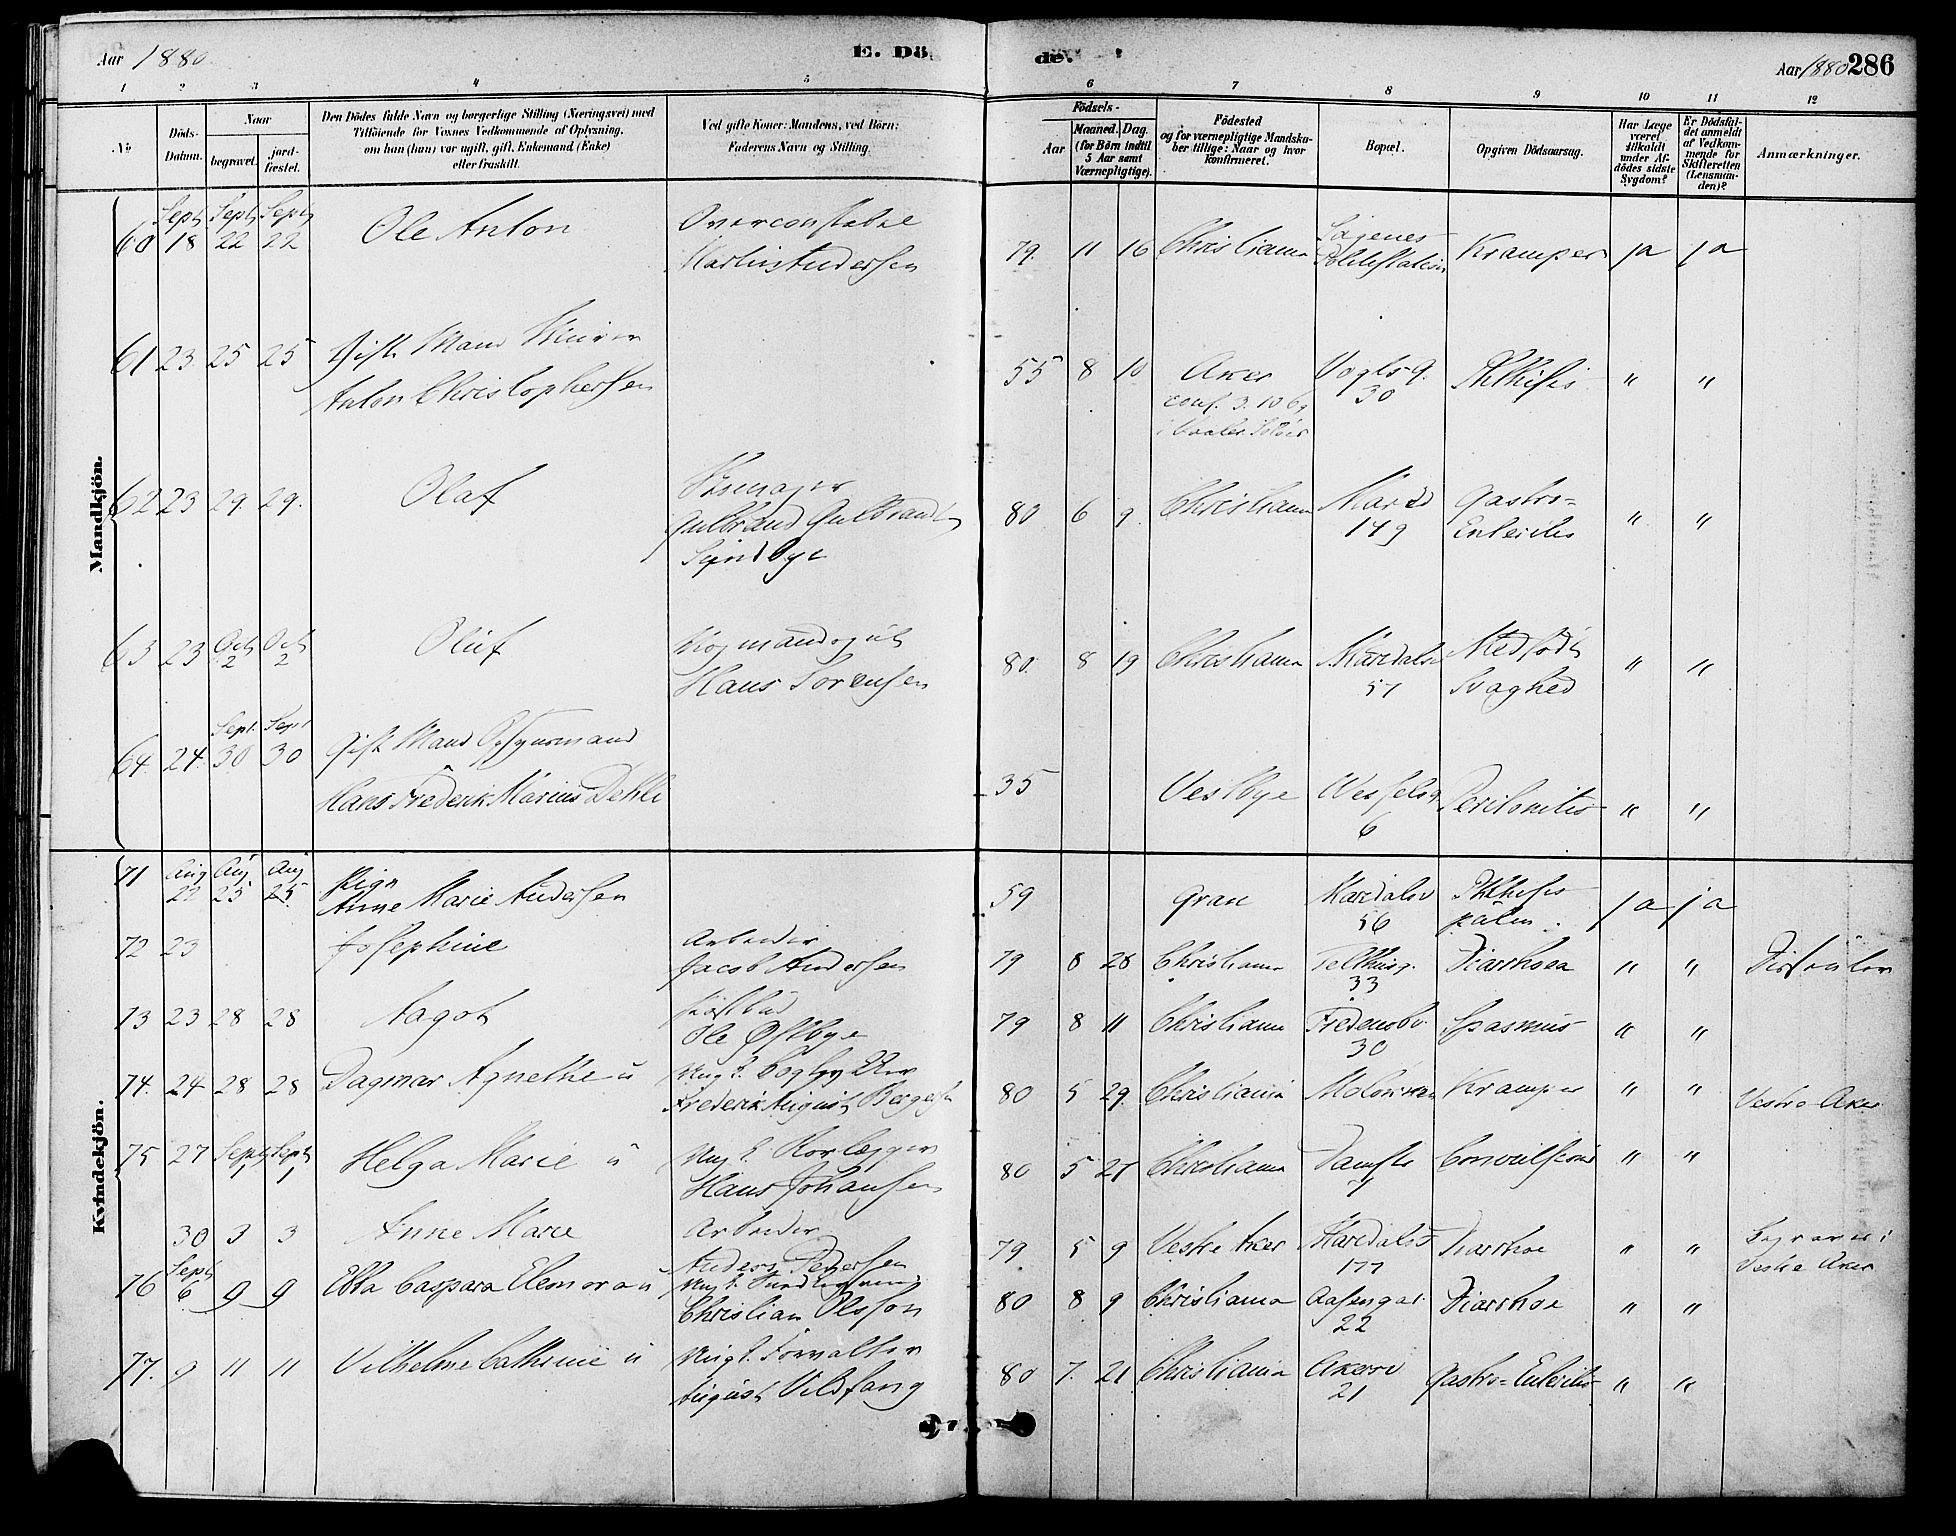 Aar 1880
E. Dö
de.
Aar 1880 286
1 2 3 4 5 6 7 8 9 10 11 12
No.
Döds-Datum.
Naar
begravet.
jord-fæstet.
Den Dödes fulde Navn og borgerlige Stilling (Næringsvei) med
Tilföiende for Voxnes Vedkommende af Oplysning,
om han (hun) var ugift, gift, Enkemand (Enke)
eller fraskilt.
Ved gifte Koner: Mandens, ved Börn:
Faderens Navn og Stilling.
Födsels-
Aar
Maaned. Dag.
(for Börn indtil
5 Aar samt
Værnepligtige).
Födested
og for værnepligtige Mandska-
ber tillige: Naar og hvor
konfirmeret.
Bopæl.
Opgiven Dödsaarsag.
Har Læge
været
tilkaldt
under Af-
dödes sidste
Sygdom?
Er Dödsfal-
det anmeldt
af Vedkom-
mende for
Skifteretten
(Lensman-
den)?
Anmærkninger.
Mandkjön.
Sept Sept Sept
60 18 22 22 Ole Anton Overconstabel
Martin Andersen
79. 11 16 Christiania Sagenes
Politistation Kramper ja ja
61 23 25 25 Gift Mand Murer
Anton Christophersen
55 8 10 Aker
conf. 3. 10 69
Vogtsg.
30 Phthisis " "
62 23 29. 29. Olaf
Gulbrand Gulbrands
80 6 9. Christiania Marid
179 Gastro=
Enteritis " "
63 23 Oct 2 Oct 2 Oluf
Hans Sorensen
80. 8 19 Christiania Maridalsv
57 Medfødt
Svaghed " "
64. 24. Sept. 30 Sept 30 Gift Mand Opsynsmand
Hans Frederik Marius Dehli
35 Vestbye Wesselsg
6 Peritonitis " "
Kvindekjön.
71 Aug 22 Aug 25 Aug 25 Pige
Anne Marie Andersen
59 Gran Maridalsv
56 Phthisis
pulm. ja ja
72 23 Josephine Arbeider
Jacob Andersen
79 8 28 Christiania Telthusg.
33 Diarrhoea " "
73 23 28 28 Aagot Postbud
Ole Østbye
79 8 11 Christiania Fredensbv.
30 Spasmus " "
74. 24 28 28 Dagmar Agnethe u Ung k. Cog
Frederik August
80 5 29. Christiania Kramper " " Vestre Aker
75 27 Sept 1 Sept 1 Helga Marie u Ung k. Rorlægger
Hans Johansen
80 5 27 Christiania Damstr
7 Convulsioner " "
30 3 3 Anne Marie Arbeider
Anders Pedersen
79 5 9 Vestre Aker Maridalsv
177 Diarrhoe " " Begravet i
Vestre Aker
76 Sept 6 9 9 Ebba Caspara Eleonora u Ung k.
Christian Olsson
80 8 9 Christiania Aasengad
22 Diarrhoe " "
77. 9 11 11 Vilhelme Cathrine u Ung k. Forvalter
August Vildfang
80 7. 21 Christiania Akersv
21 Gastro=Enteritis " "